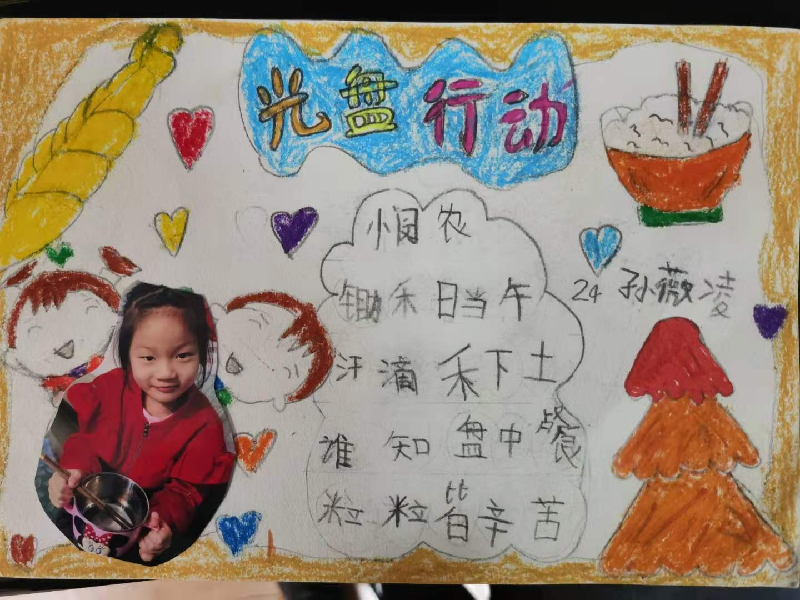 光盘行动
小闵农
24 孙薇凌
锄禾日当午
汗滴禾下土
谁知盘中餐
粒粒皆辛苦